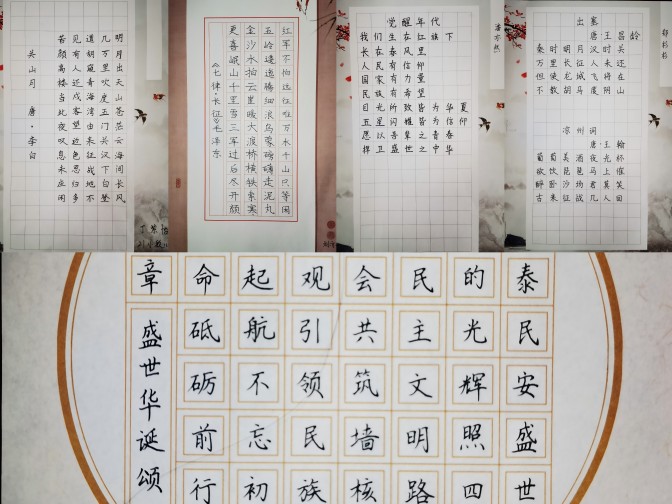 明月出天山苍茫云海间长风
几万里吹度玉门关汉下白登
道胡窥青海湾由来征战地不
见有人还戍客望边色思归多
苦颜高楼当此夜叹息未应闲
关山月 唐·李白
红军不怕远征难万水千山只等闲
五岭逶迤腾细浪乌蒙磅礴走泥丸
金沙水拍云崖暖大渡桥横铁索寒
更喜岷山千里雪三军过后尽开颜
《七律·长征》毛泽东
觉醒年代
我们生在红旗下
长在春风里
人民有信仰
国家有力量
民族有希望
目光所致皆为华夏
五星闪耀皆为信仰
愿以吾辈之青春
捍卫盛世之中华
出塞
唐 王昌龄
秦时明月汉时关
万里长征人未还
但使龙城飞将在
不教胡马度阴山
凉州词
唐 王翰
葡萄美酒夜光杯
欲饮琵琶马上催
醉卧沙场君莫笑
古来征战几人回
泰民安盛世
的光辉照四
民主文明路
会共筑墙核
观引领民族
起航不忘初
命砥砺前行
章
盛世华诞颂